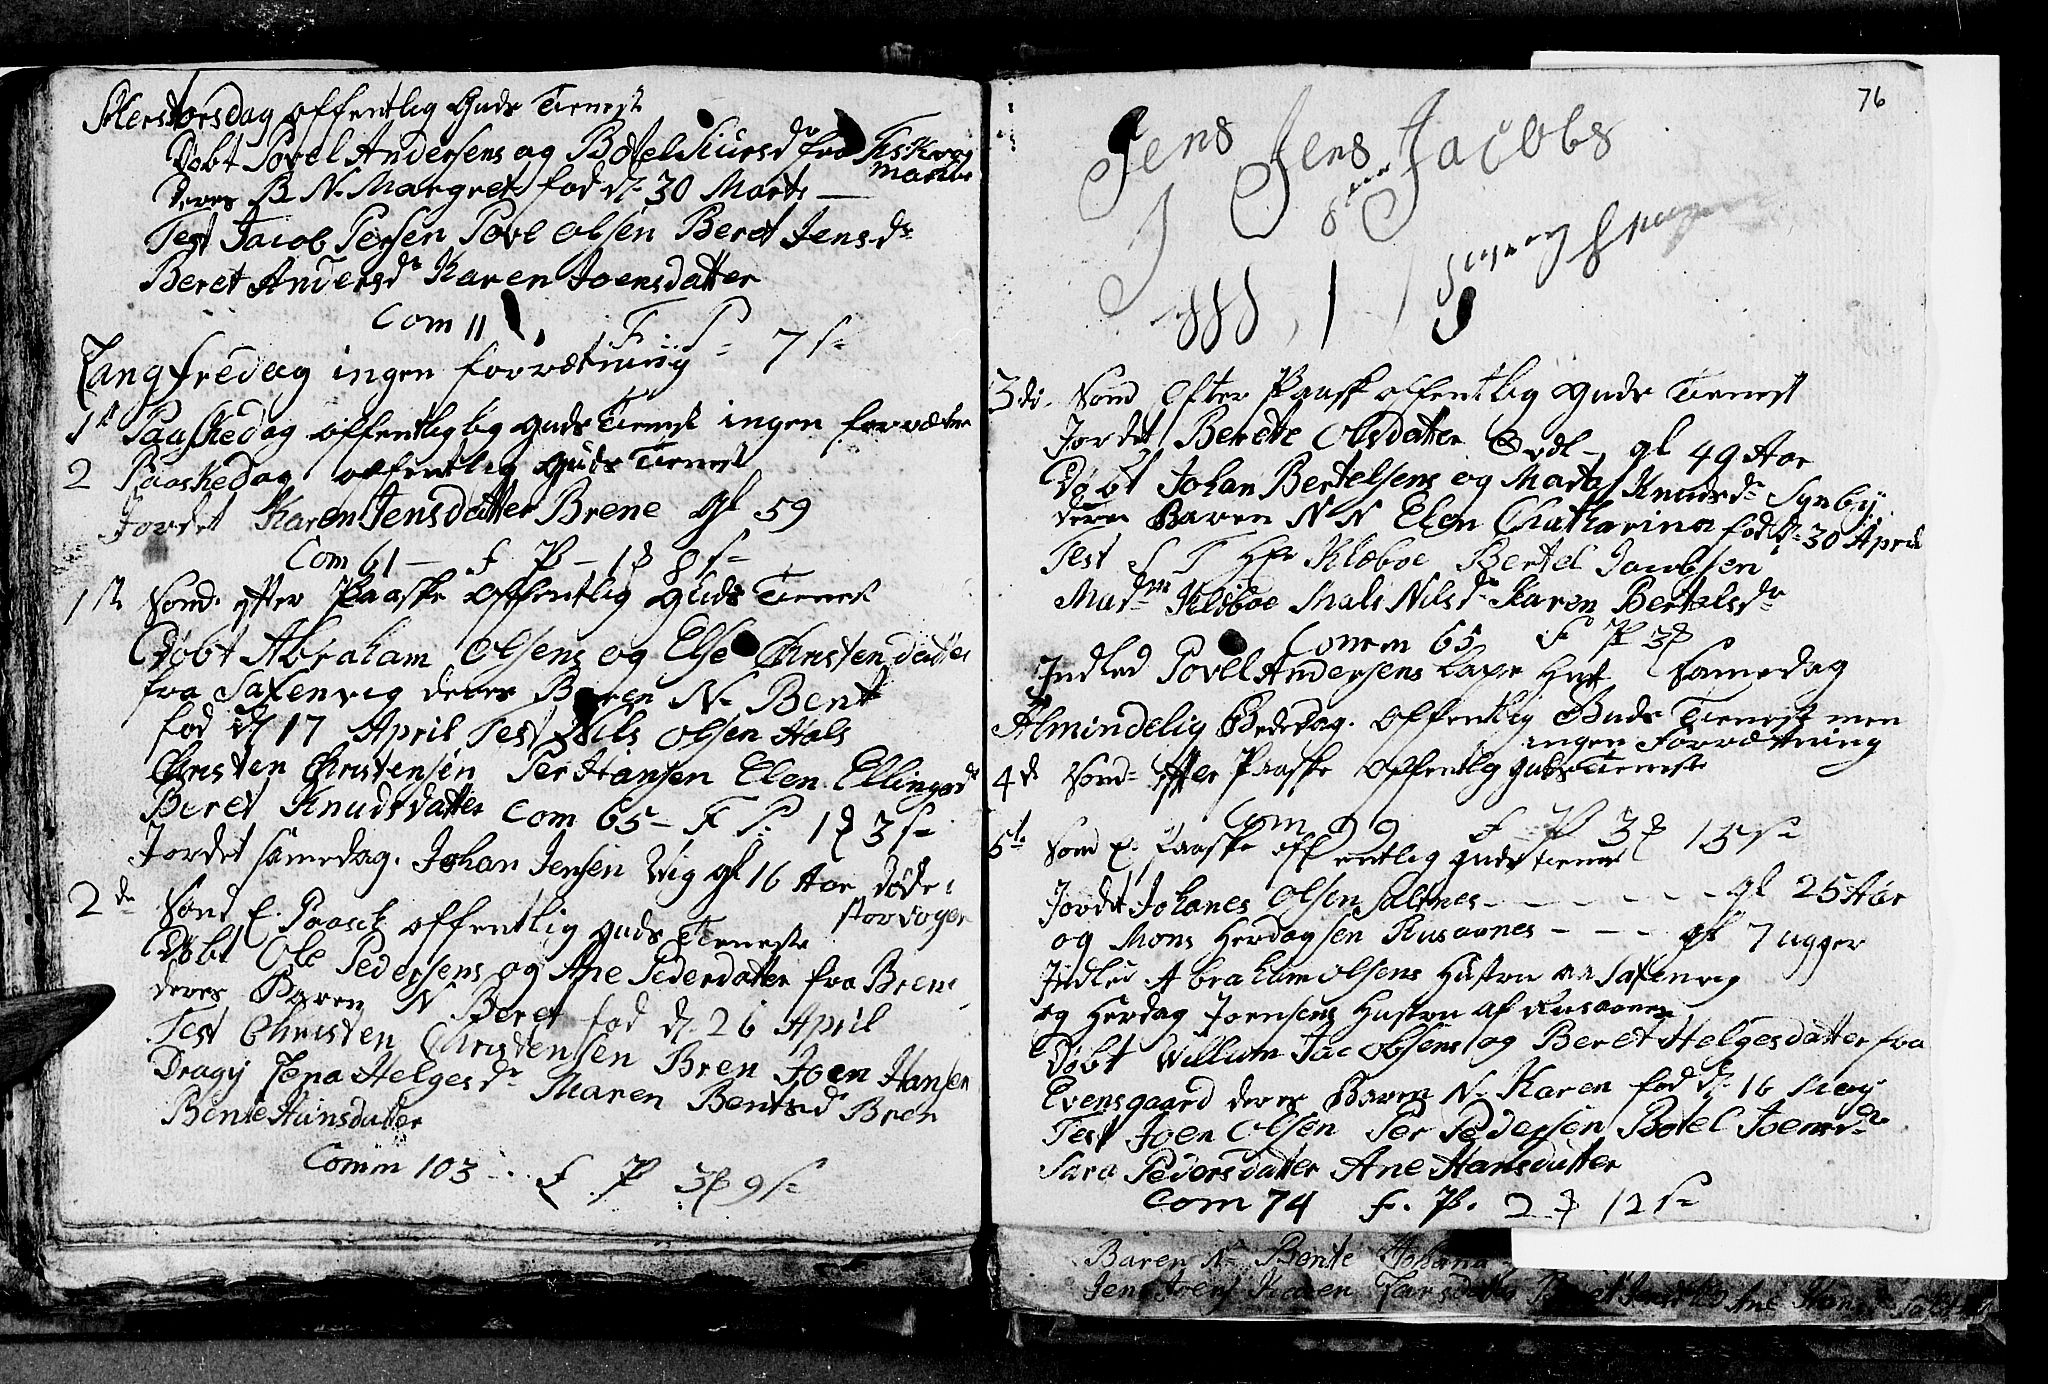 Skerstorsdag offentlig Guds Tienest
Døbt Povel Andersens og Botel Siursdr fra Fiskvog
marke
deres B N. Margret fod d. 30 Marts —
Test Jacob Persen Povel Olsen Beret Jensdr
Beret Andersdr Karen Joensdatter
Com 11 F. P = 7 s
Langfredag ingen forrætning
1st Paaskedag offentliglig Guds Tienest ingen forrætn
2 Paaskedag offentlig Guds Tienest
Jordet Karen Jensdatter Brene gl 59
Com 61 — F P — 1 8 s
1st Sond. efter Paaske offentlig Guds Tienest
Døbt Abraham Olsens og Else Christendatter
fra Saxenvig deres Baren N. Bent
fod d. 17 April Test Nils Olsen Hals
Christen Christensen Per Hansen Elen Ellingsd
Beret Knudsdatter Com 65 — F P. 1 3 s
Jordet samedag. Johan Jensen Vig gl 16 Aar døde
storvogen
2de Sond E. Paask offentlig Guds Tieneste
Døbt Ole Pedersens og Ane Pedersdatter fra Bren
deres Baren N Beret fod d. 26 April
Test Christen Christensen Bren Joen Hansen
Dragy Lena Helgesdr Maren Bentsd Bren
Bente Hansdatter
Comm 103 . . F P 3 9 s
76
Jens Jens Jacobs
J
3die Sond Efter Paask offentlig Guds Tienest
Jordet Berete Olsdatter — gl 49 Aar
Døbt Johan Bertelsens og Marta Knudsdr Synby
deres Baren N N Elen Chatharina fod d. 30 April
Test S T Hr Klæboe Bertel Jacobsen
Madme Klæboe Mals Nilsdr Karen Bertelsdr
Comm 65 F P 3
Indled Povel Andersens Hust Samedag
Almindelig Bededag. offentlig Guds Tienest men
ingen Forrætning
4de Sond = efter Paaske offentlig Guds Tieneste
Com 99 F P 3 15 s
5te Sond E. Paaske offentlig Guds Tienest
Jordet Johanes Olsen Saltnes — — — — gl 25 Aar
og Mons Herdagsen Rusaanes — — — gl 7 ugger
Indled Abraham Olsens Hustru Saxenvig
og Herdag Joensens Hustru af Rusaanes
Døbt Willum Jacobsens og Beret Helgesdatter fra
Evensgaard deres Baren N. Karen fod d. 16 May
Test Joen Olsen Per Pedersen Botel Joensdr
Sara Pedersdatter Ane Hansdatter
Com 74 F. P. 2 12 s
Baren N. Bente Johana
Jens Joens Karen Larsdatter Ane